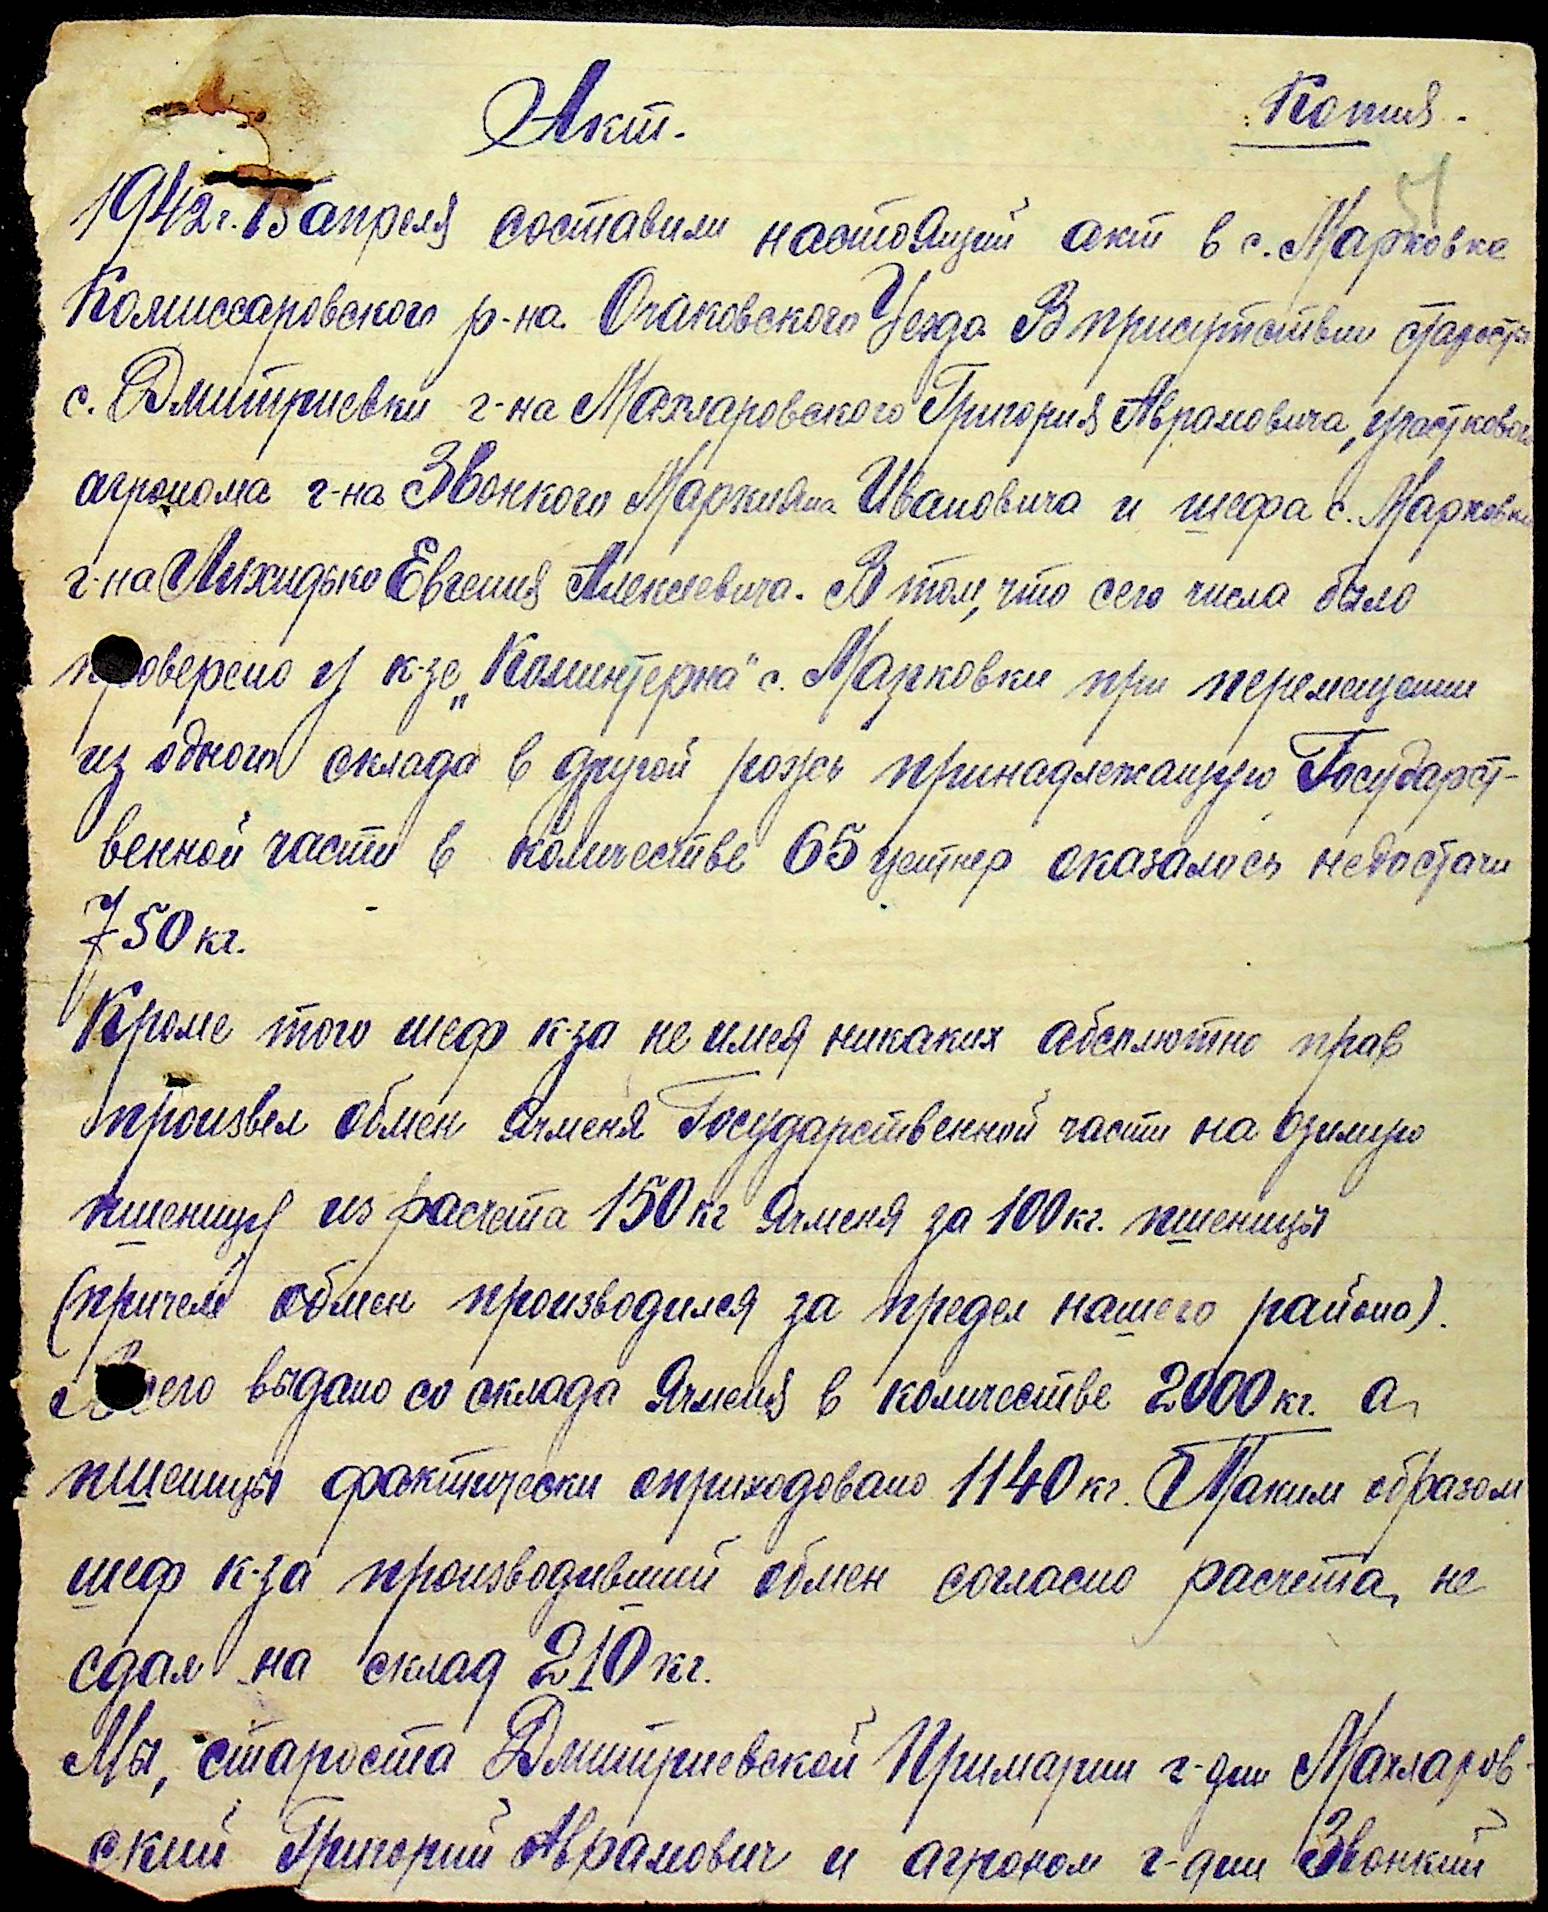 Акт.
Копия.
51
1942 г. 15 апреля составили настоящий акт в с. Марковке
Комиссаровского р-на Очаковского Уезда В присутствии старосты
с. Дмитриевки г-на Махларовского Григория Аврамовича, участкового
агронома г-на Звонкого Маркияна Ивановича и шефа с. Марковки
г-на Лихидько Евгения Алексеевича. В том, что сего числа было
проверено у к-зе „Коминтерна" с. Марковки при перемещении
из одного склада в другой рожь принадлежащую Государст-
венной части в количестве 65 центнер оказалось недостачи
750 кг.
Кроме того шеф к-за не имея никаких абсолютно прав
произвел обмен ячменя Государственной части на озимую
пшеницу из расчета 150 кг ячменя за 100 кг. пшеницы
(причем обмен производился за предел нашего района).
Всего выдано со склада ячменя в количестве 2000 кг. а
пшеницы фактически оприходовано 1140 кг. Таким образом
шеф к-за производивший обмен согласно расчета, не
сдал на склад 210 кг.
Мы, староста Дмитриевской Примарии г-дин Махларов-
ский Григорий Аврамович и агроном г-дин Звонкий